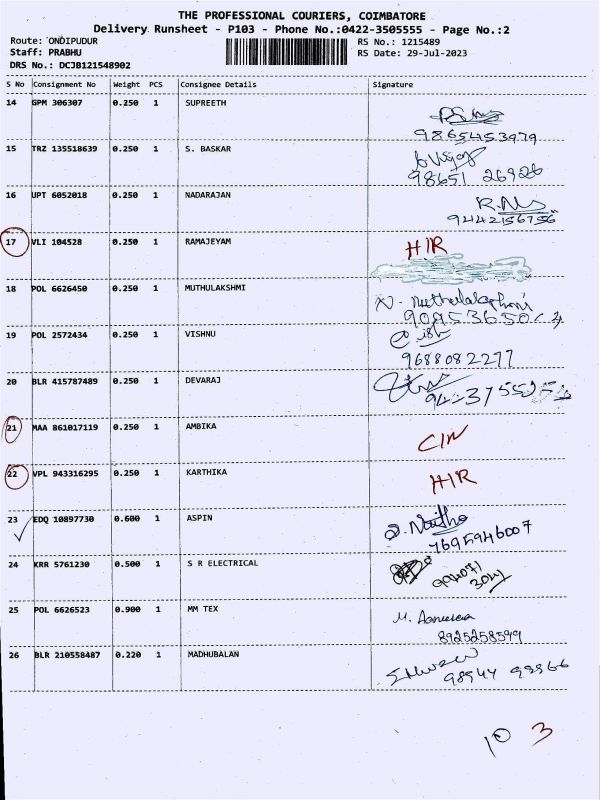 THE PROFESSIONAL COURIERS, COIMBATORE
Delivery Runsheet - P103 - Phone No.:0422-3505555 - Page No.:2
Route: ONDIPUDUR RS No.: 1215489
Staff: PRABHU RS Date: 29-Jul-2023
DRS No.: DCJB121548902
S No Consignment No Weight PCS Consignee Details Signature
14 GPM 306307 0.250 1 SUPREETH
9865453979
15 TRZ 135518639 0.250 1 S. BASKAR
98651 26926
16 UPT 6052018 0.250 1 NADARAJAN
9442156756
17 VLI 104528 0.250 1 RAMAJEYAM HIR
18 POL 6626450 0.250 1 MUTHULAKSHMI
19 POL 2572434 0.250 1 VISHNU
9688082277
20 BLR 415787489 0.250 1 DEVARAJ
21 MAA 861017119 0.250 1 AMBIKA CIN
22 VPL 943316295 0.250 1 KARTHIKA HIR
23 EDQ 10897730 0.600 1 ASPIN
7695946007
24 KRR 5761230 0.500 1 S R ELECTRICAL
25 POL 6626523 0.900 1 MM TEX
8925258599
26 BLR 210558487 0.220 1 MADHUBALAN
10 3